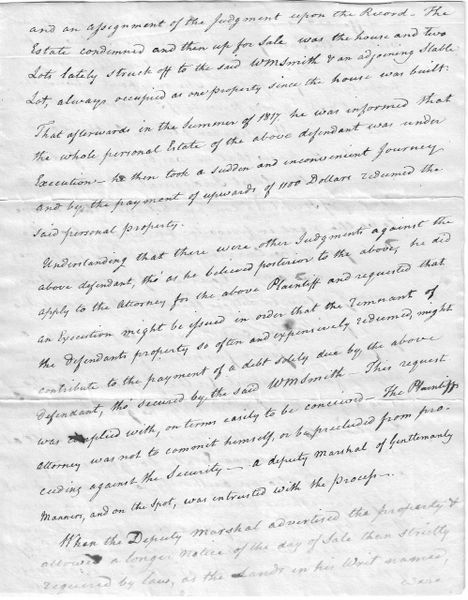 and an assignment of the Judgment upon the Record – The
Estate condemned and then up for Sale was the house and two
Lots lately struck off to the said WMSmith & an adjoining Stable
Lot, always occupied as one property since the house was built:
That afterwards in the Summer of 1817 he was informed that
the whole personal Estate of the above defendant was under
Execution – he then took a sudden and inconvenient Journey
and by the payment of upwards of 1100 Dollars redeemed the
said personal property.
Understanding that there were other Judgments against the
above defendant, tho' as he believed posterior to the above, he did
apply to the Attorney for the above Plaintiff and requested that
an Execution might be issued in order that the remnant of
the Defendants property so often and expensively redeemed, might
contribute to the payment of a debt solely due by the above
defendant, tho' secured by the said WMSmith – This request
was complied with, on terms easily to be conceived – The Plaintiffs
Attorney was not to commit himself, or be precluded from pro-
ceeding against the Security – a deputy Marshal of Gentlemanly
Manners, and on the Spot, was intrusted with the Process –
When the Deputy Marshal advertised the property &
allowed a longer notice of the day of Sale than strictly
required by law, as the Lands in his Writ named,
were